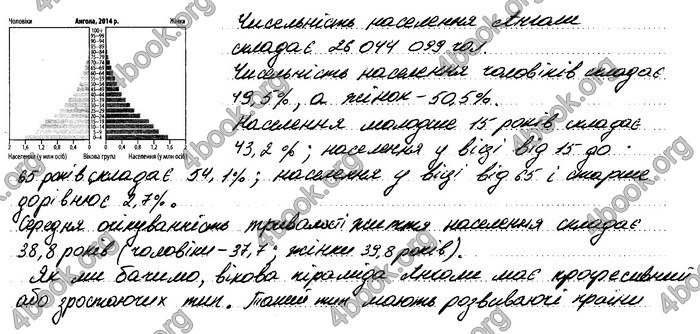 Чоловіки Ангола, 2014 р. Жінки
100+
95–99
90–94
85–89
80–84
75–79
70–74
65–69
60–64
55–59
50–54
45–49
40–44
35–39
30–34
25–29
20–24
15–19
10–14
5–9
0–4
2 1,6 1,2 0,8 0,4 0 0 0,4 0,8 1,2 1,6 2
Населення (у млн осіб) Вікова група Населення (у млн осіб)
Чисельність населення Анголи
складає 26 044 099 чол.
Чисельність населення чоловіків складає
49,5%, а жінок - 50,5%.
Населення молодше 15 років складає
43,2%; населення у віці від 15 до
65 років складає 54,1%; населення у віці від 65 і старше
дорівнює 2,7%.
Середня очікуванність тривалості життя населення складає
38,8 років (чоловіки - 37,7; жінки 39,8 років).
Як ми бачимо, вікова піраміда Анголи має прогресивний
або зростаючих тип. Такий тип мають розвиваючі країни
4book.org